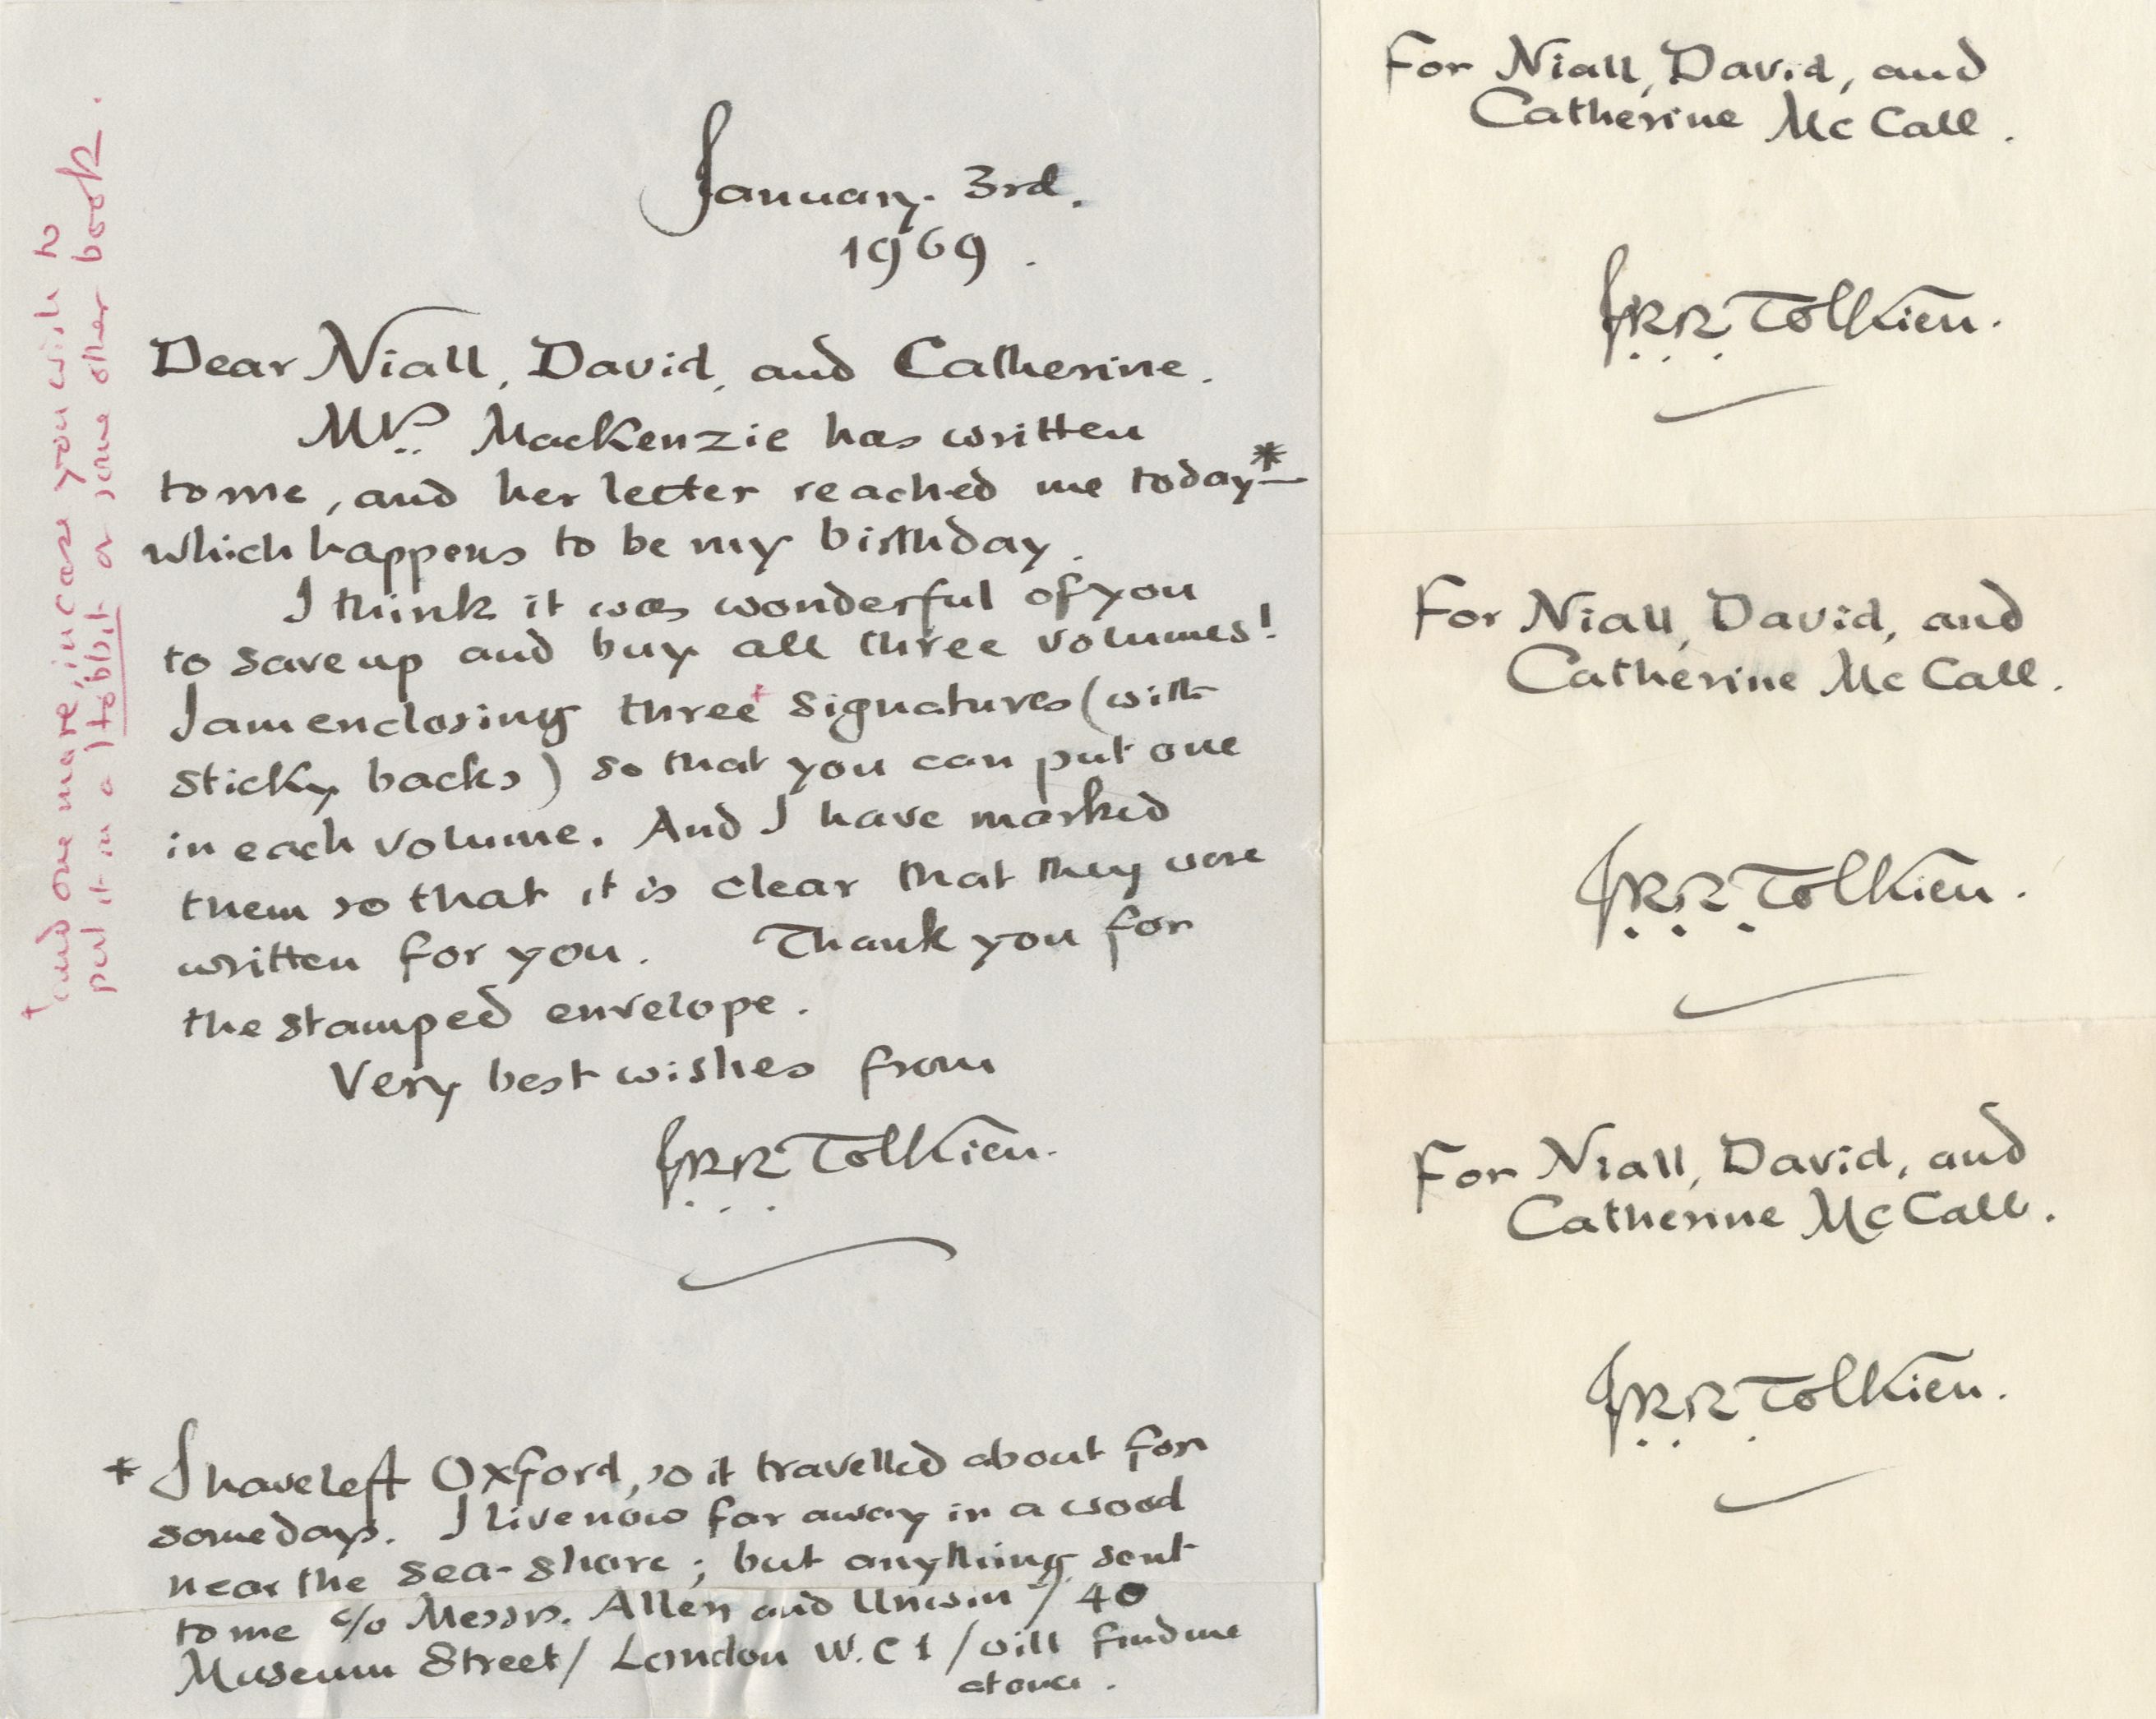 January. 3rd.
1969.
Dear Niall, David, and Catherine.
Mrs. MacKenzie has written
to me, and her letter reached me today*—
which happens to be my birthday.
I think it was wonderful of you
to save up and buy all three volumes!
I am enclosing three† signatures (with
sticky backs) so that you can put one
in each volume. And I have marked
them so that it is clear that they were
written for you. Thank you for
the stamped envelope.
Very best wishes from
JRR Tolkien.
* I have left Oxford, so it travelled about for
some days. I live now far away in a wood
near the sea-shore; but anything sent
to me c/o Messrs. Allen and Unwin / 40
Museum Street / London W.C1 / will find me
at once.
† and one more, in case you wish to
put it in a Hobbit or some other book.
For Niall, David, and
Catherine McCall.
JRR Tolkien.
For Niall, David, and
Catherine McCall.
JRR Tolkien.
For Niall, David, and
Catherine McCall.
JRR Tolkien.